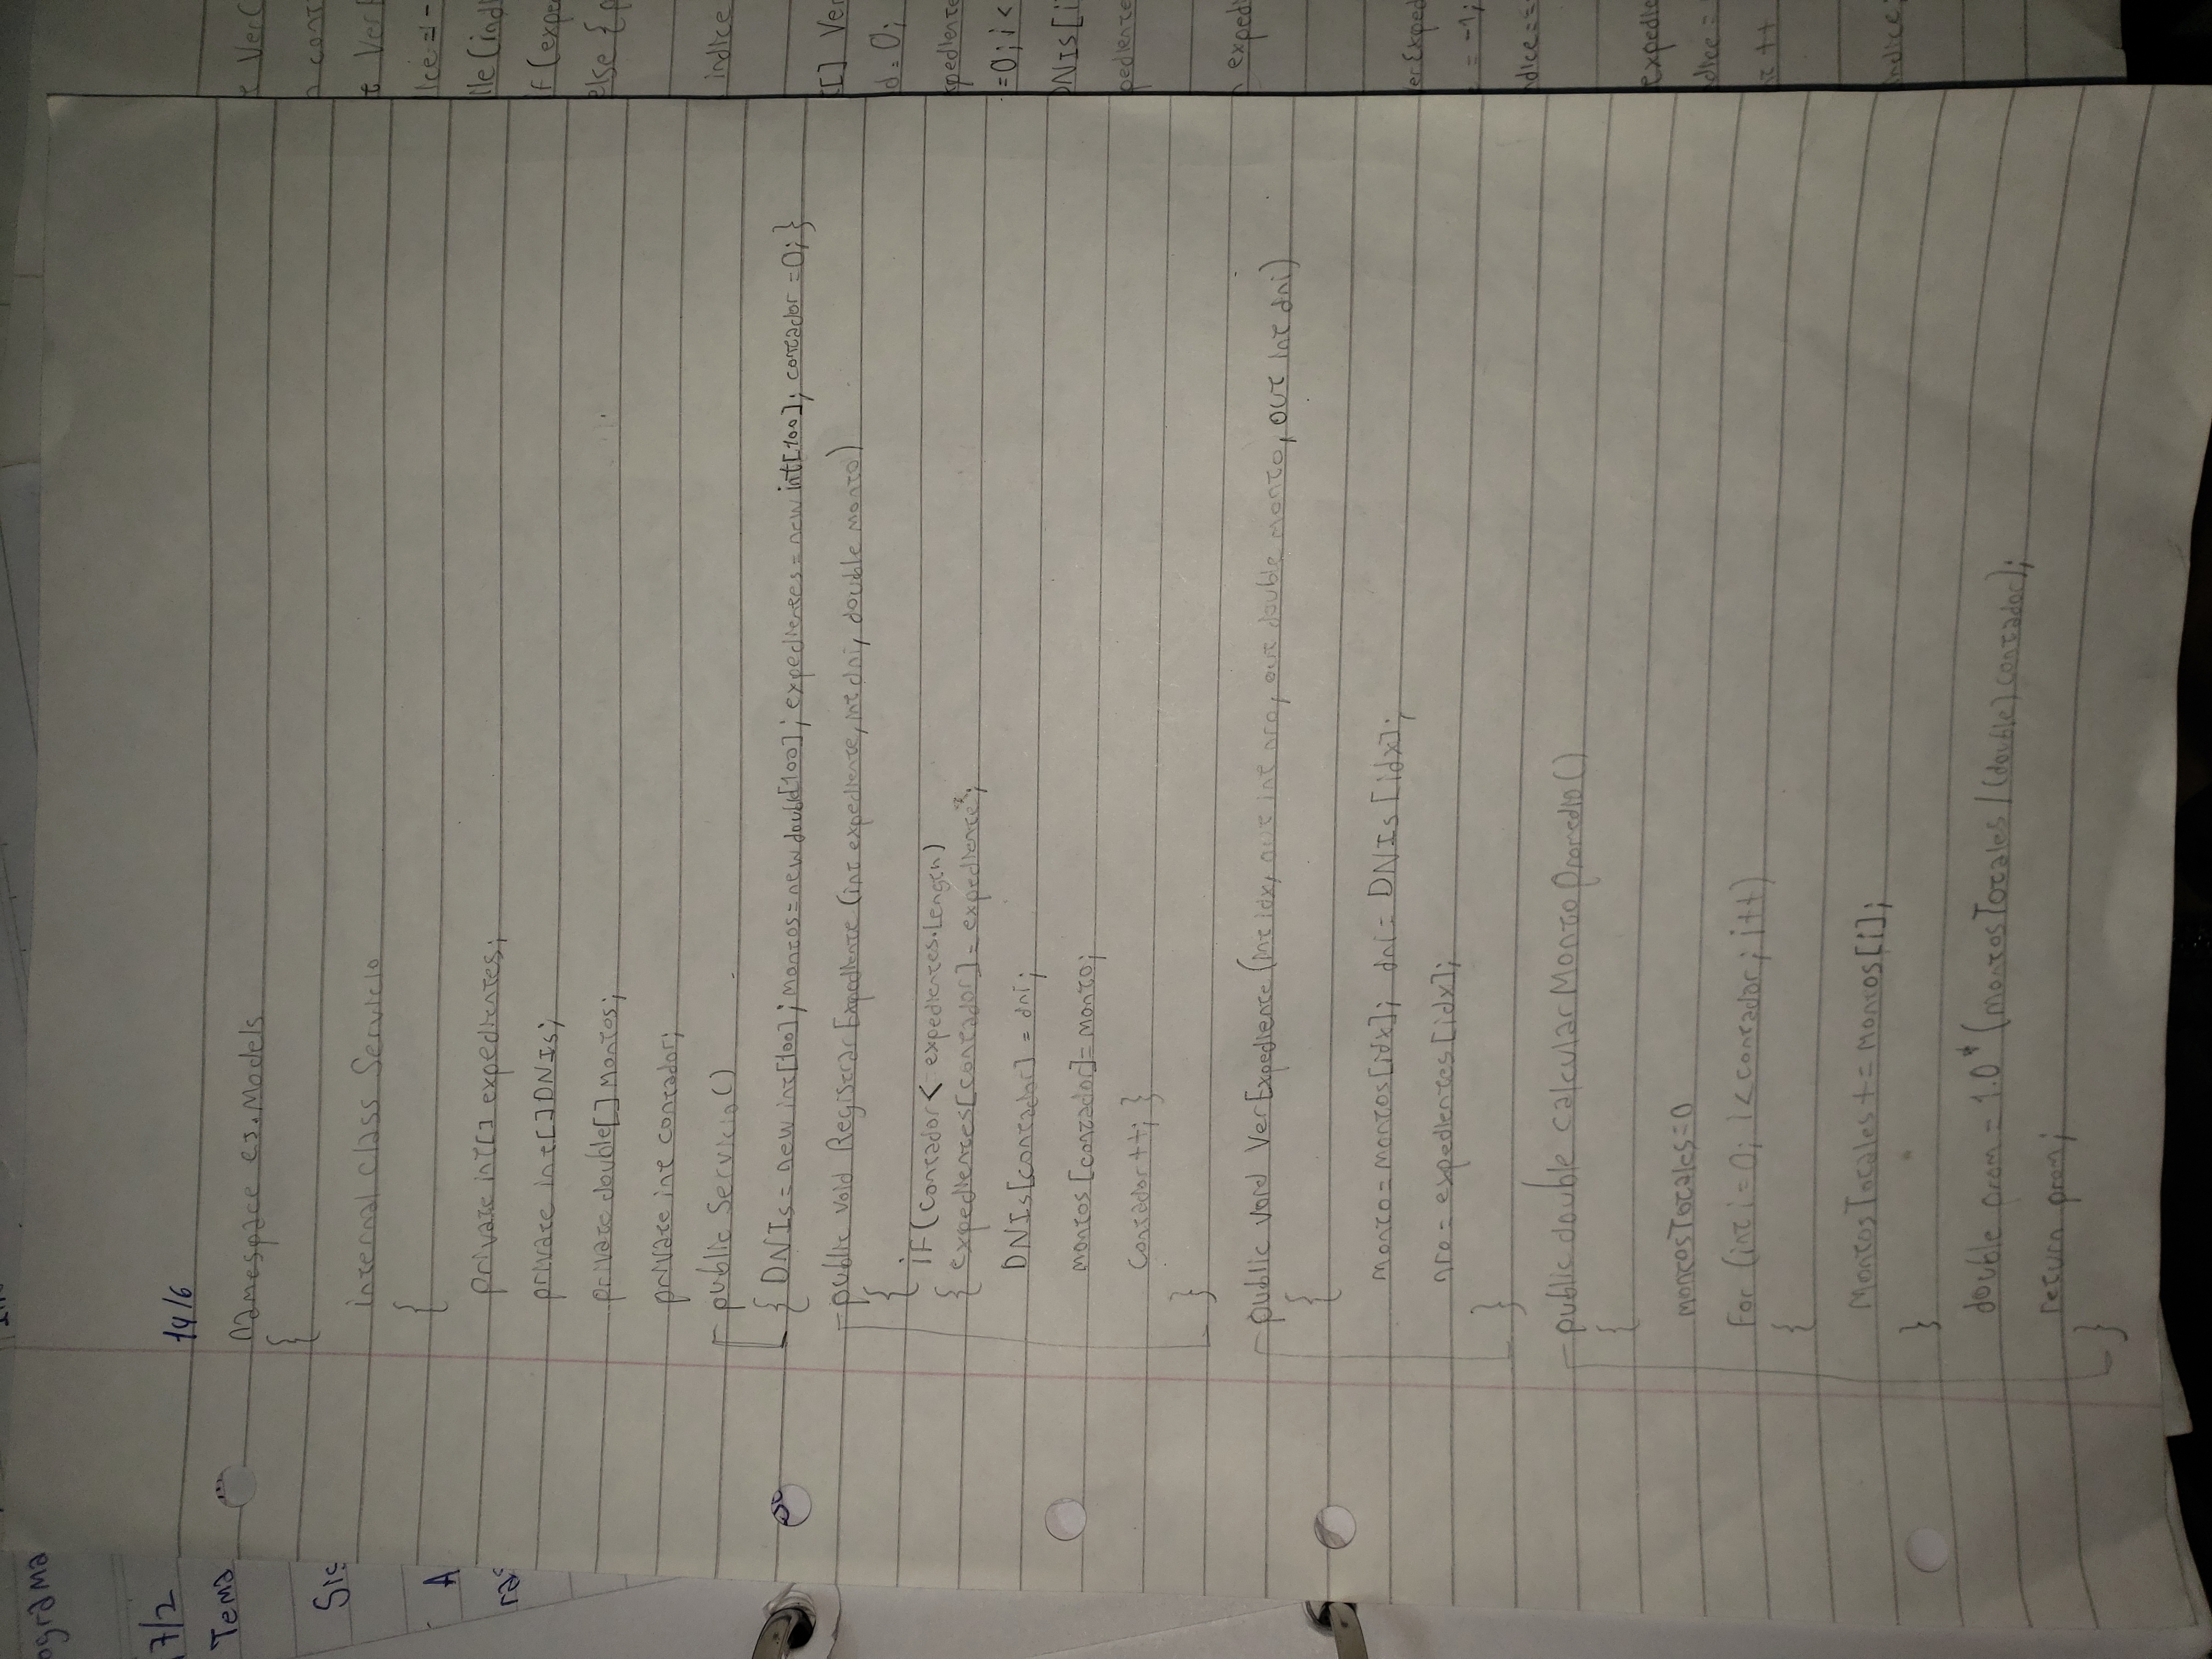 ograma
7/2
Tema
Sis
A
ras
14/6
Namespace ej.Models
{
internal class Servicio
{
private int[] expedientes;
private int[] DNIs;
private double[] montos;
private int contador;
public Servicio()
{ DNIs = new int[100]; montos = new double[100]; expedientes = new int[100]; contador = 0; }
public void RegistrarExpediente (int expediente, int dni, double monto)
{
if (contador < expedientes.Length)
{ expedientes[contador] = expediente;
DNIs[contador] = dni;
montos [contador] = monto;
contador ++; }
}
public void VerExpediente (int idx, out int nro, out double monto, out int dni)
{
monto = montos[idx]; dni = DNIs [idx];
nro = expedientes [idx];
}
public double calcularMontoPromedio()
{
montosTotales = 0
For (int i = 0; i < contador; i++)
{
MontosTotales += montos[i];
}
double prom = 1.0 * (montosTotales / (double) contador);
return prom;
}
VerC
cont
Ver
ice = -
ile (ind
if (expe
else { p
indice
[] Ver
d = 0;
xpediente
= 0; i <
DNIs [i
pediente
exped
erExped
= -1;
dice ==
expedie
dice =
++
indice